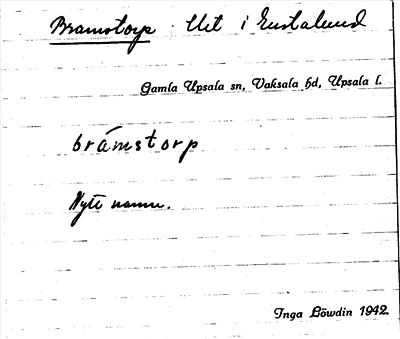 Bramstorp Ut i Enstalund
Gamla Upsala sn, Vaksala hd, Upsala l.
brámstorp
Nytt namn.
Inga Löwdin 1942.